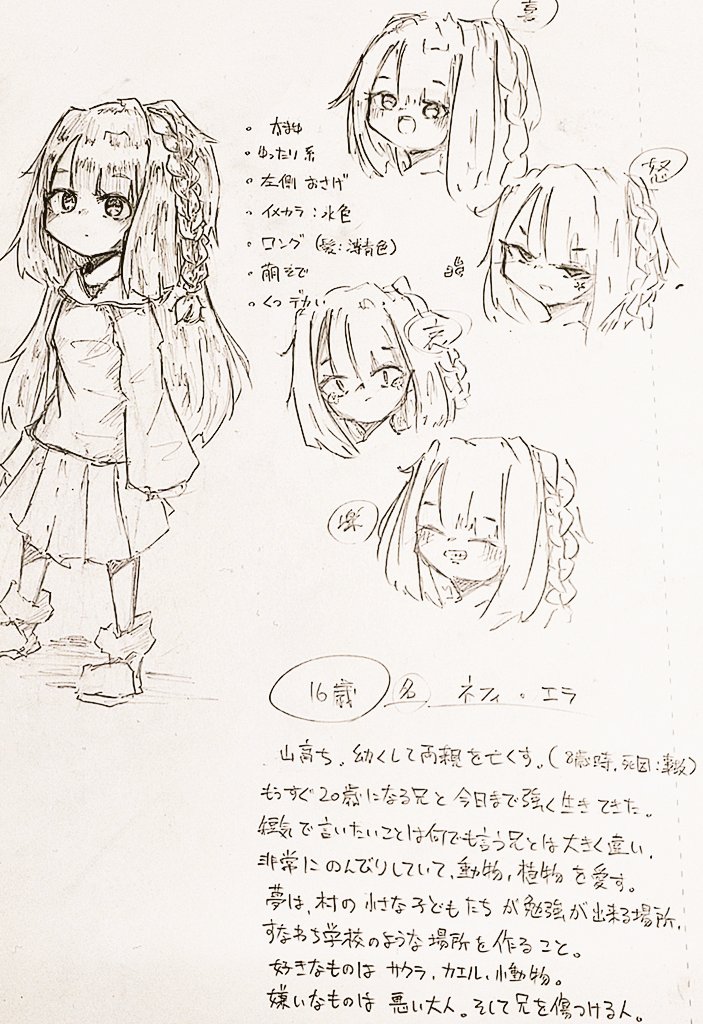 喜
・かまゆ
・ゆったり系
・左側 おさげ
・イメカラ:水色
・ロング(髪:薄青色)
・萌えそで
・くつ デカい
怒
哀
楽
16歳 名 ネフィ・エラ
山育ち、幼くして両親を亡くす。(8歳時、死因:事故)
もうすぐ20歳になる兄と今日まで強く生きてきた。
短気で言いたいことは何でも言う兄とは大きく違い、
非常にのんびりしていて、動物、植物を愛す。
夢は、村の小さな子どもたちが勉強が出来る場所、
すなわち学校のような場所を作ること。
好きなものは サクラ、カエル、小動物。
嫌いなものは 悪い大人。そして兄を傷つける人。